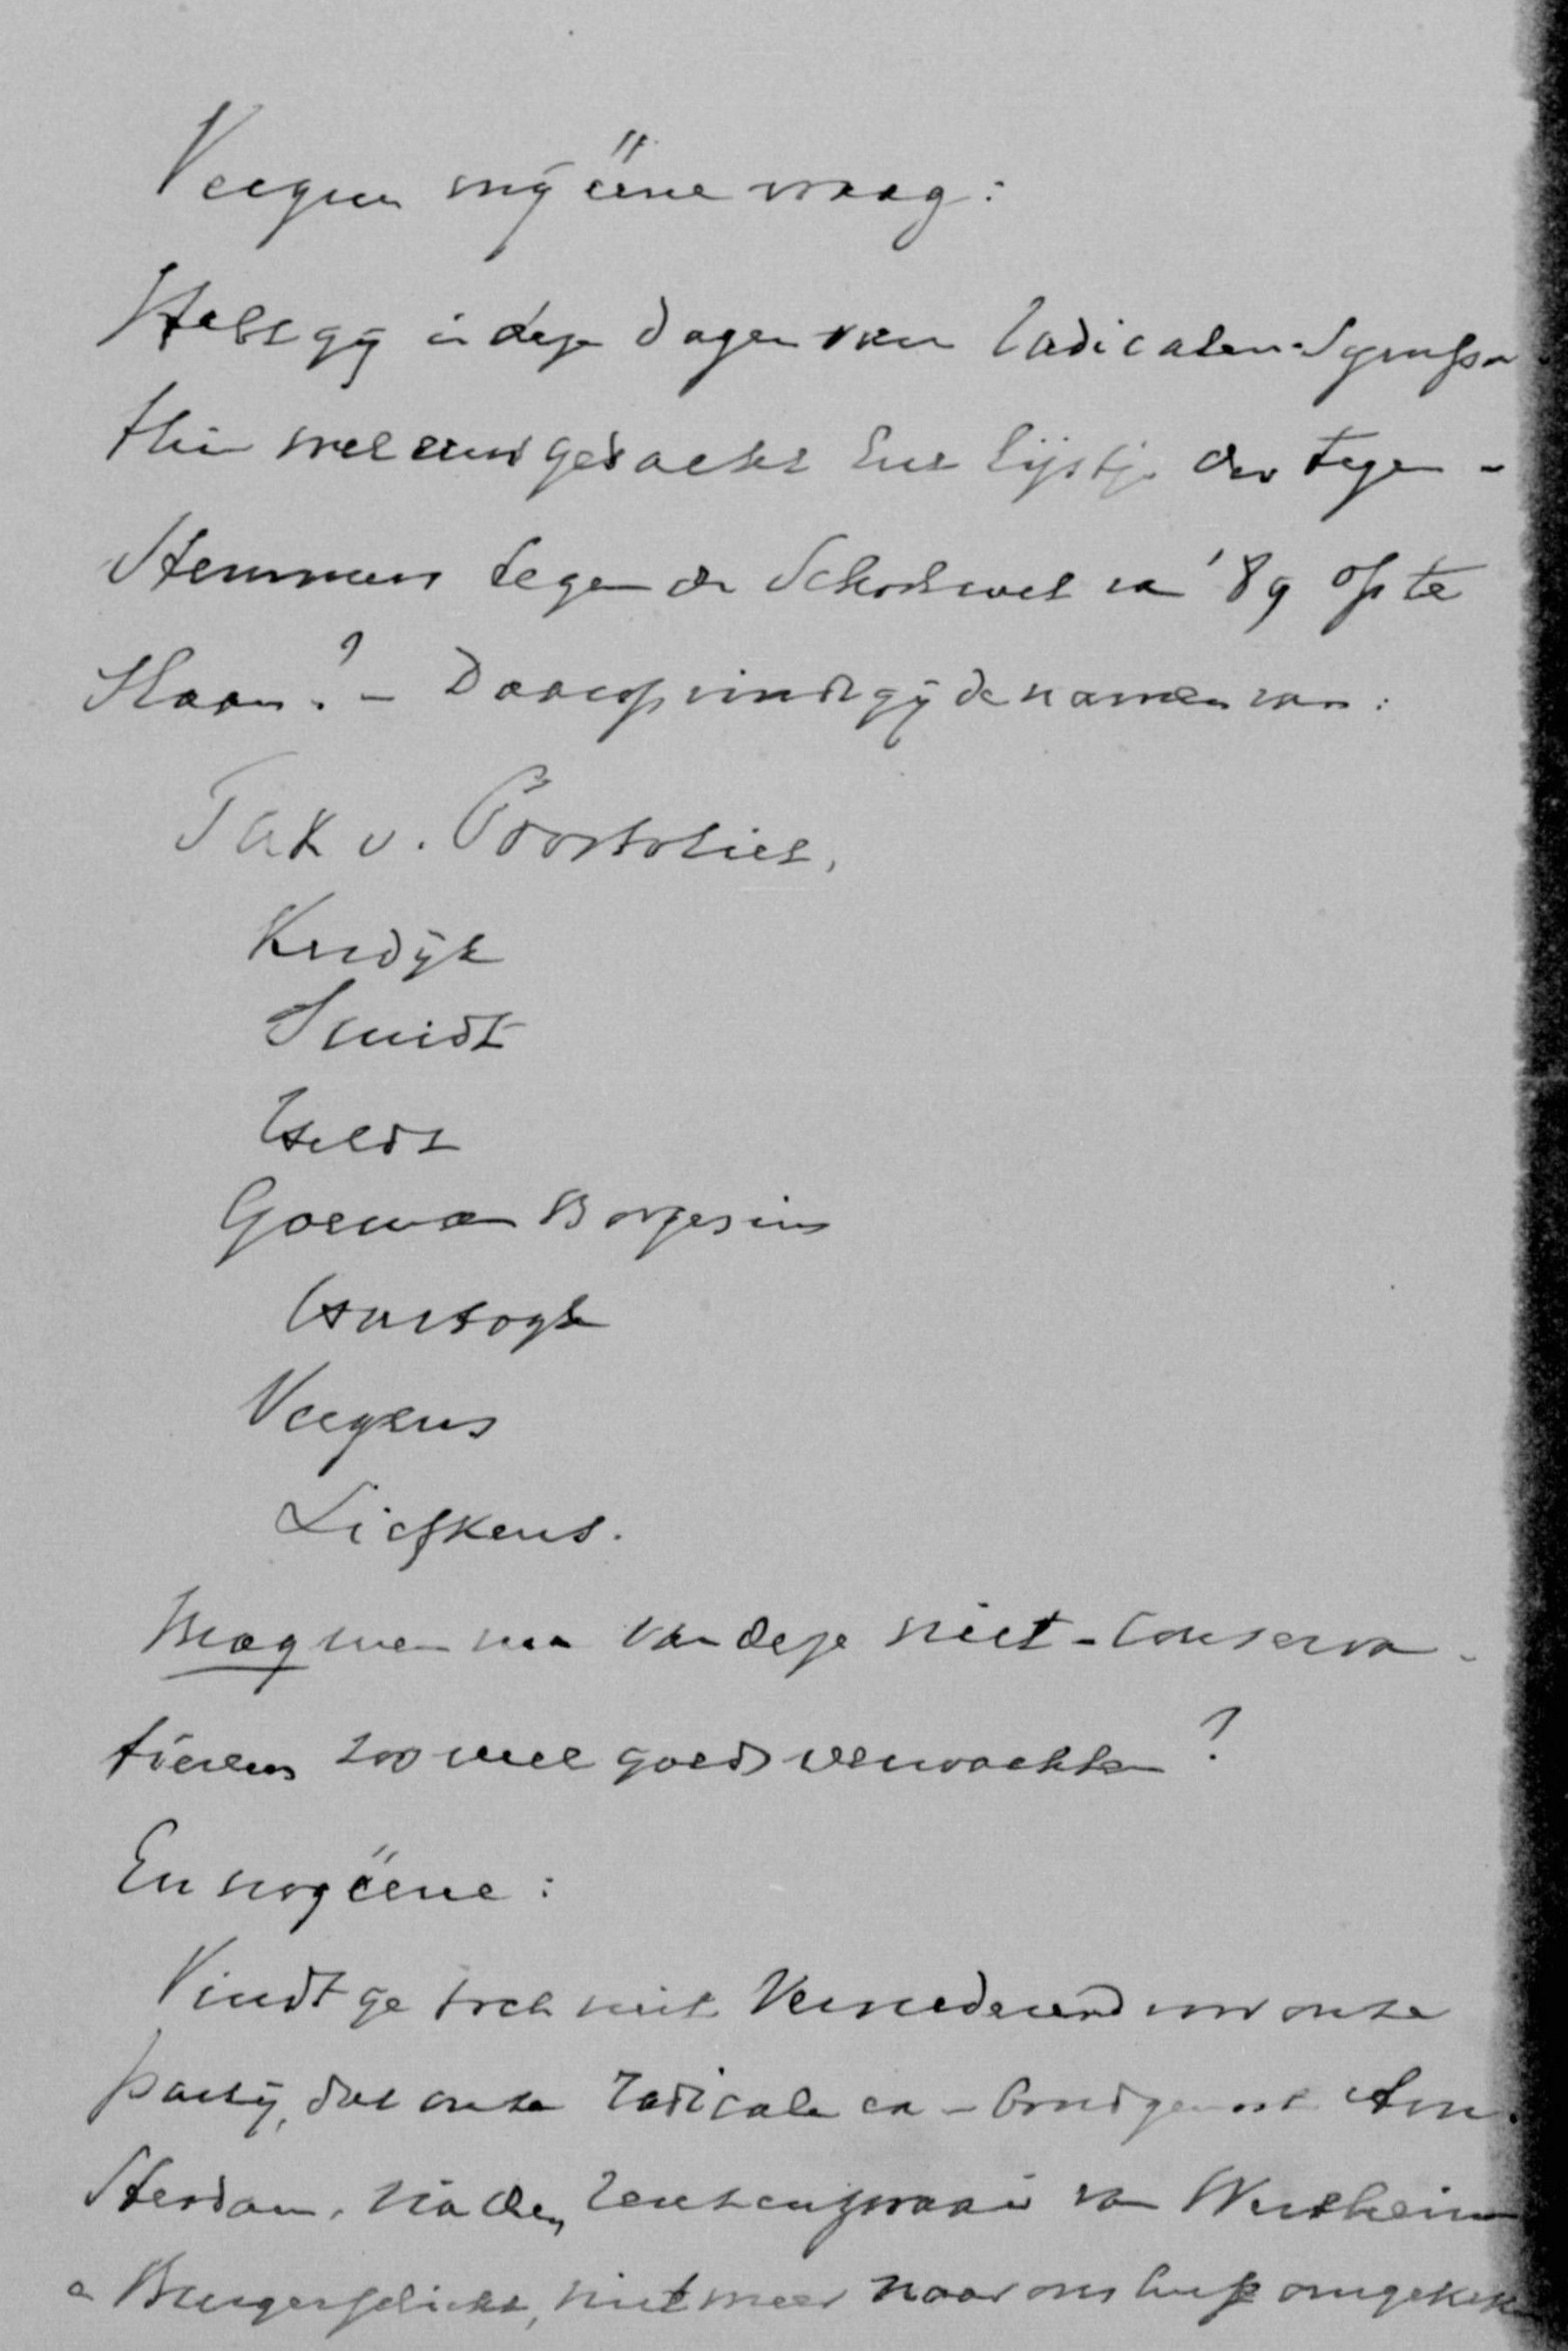 Vergun mij ééne vraag:
Hebt gij in deze dagen van radicalen-Sympa-
thie wel eens gedacht het lijstje der tegen-
Stemmers tegen de Schoolwet van '89 op te
Slaan? - Daarop vindt gij de namen van:
Tak v. Poortvliet,
Kerdijk
Smidt
Heldt
Goeman Borgesius
Hartogh
Veegens
Liefkens.
Mag men nu van deze niet-conserva-
tieven zoo veel goeds verwachten?
En nog ééne:
Vindt ge toch niet vernederend voor onze
partij, dat onze radicale bondgenoot Am-
Sterdam, na den van Wertheim
niet meer naar ons hulp omgekeken